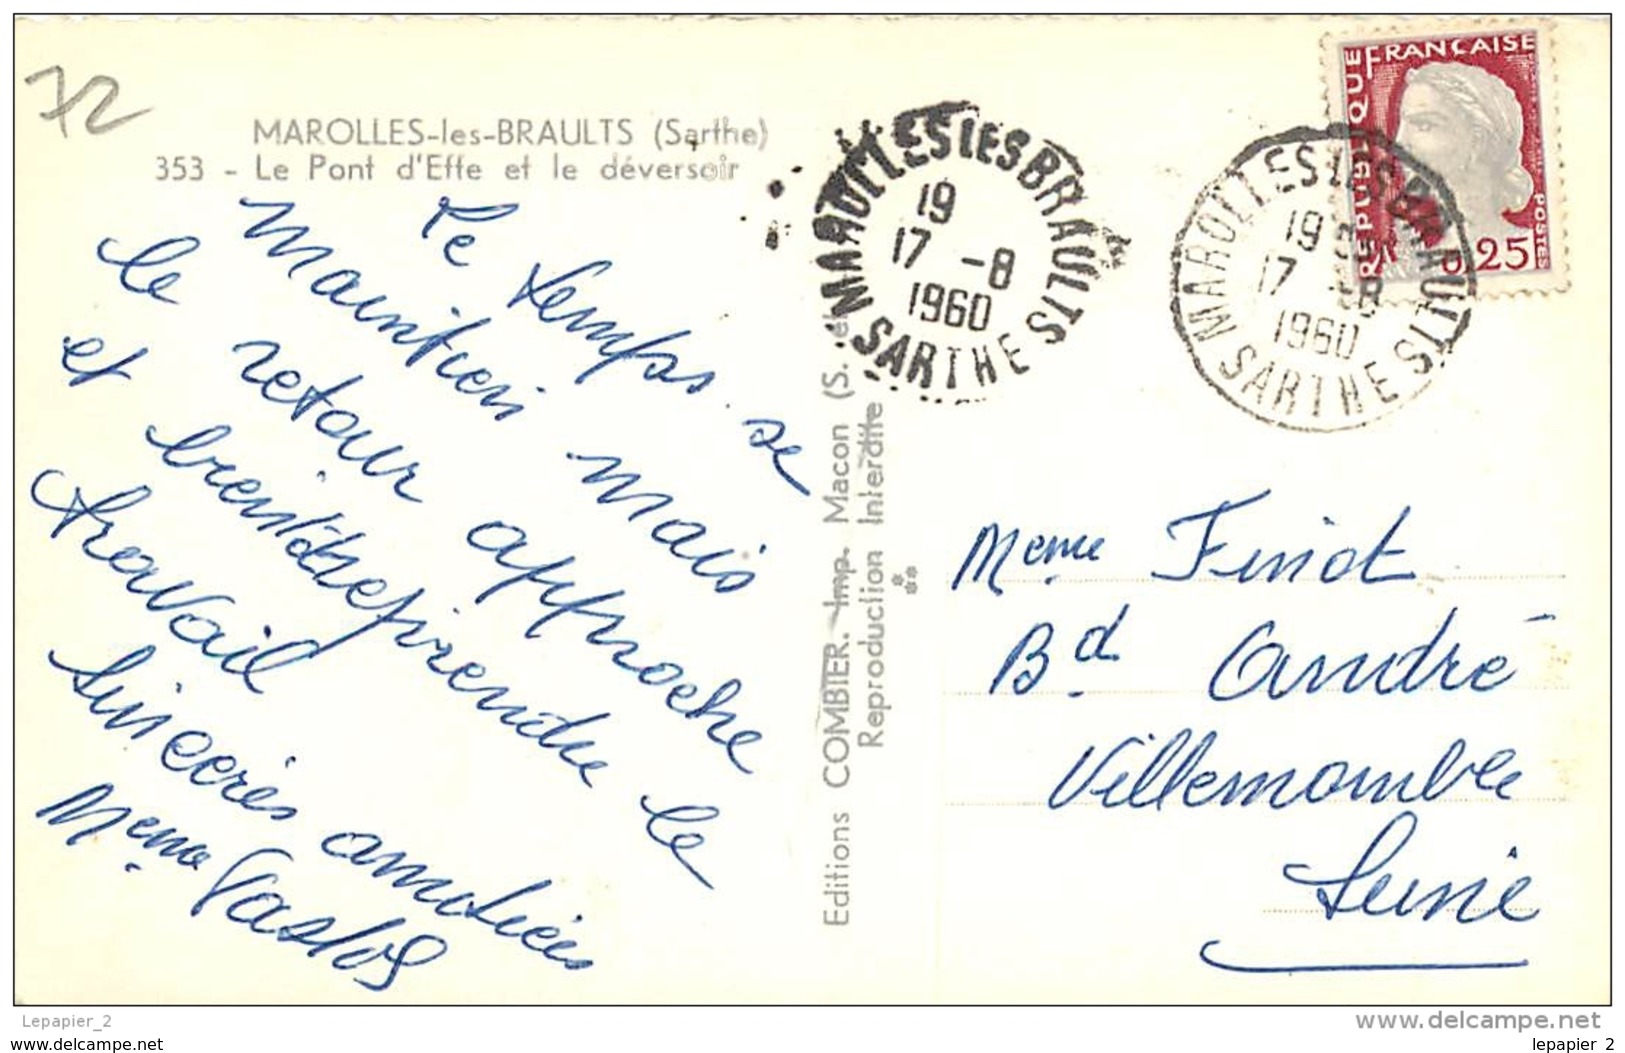 72
MAROLLES-les-BRAULTS (Sarthe)
353 - Le Pont d'Effe et le déversoir
Le temps se
maintien mais
le retour approche
et bientôt reprendre le
travail
Sincères amitiés
Mme
Editions COMBIER. Imp. Macon (S. et
Reproduction Interdite
MAROLLES LES BRAULTS
19
17 -8
1960
SARTHE
MAROLLES LES BRAULTS
19
17 -8
1960
SARTHE
REPUBLIQUE FRANCAISE
POSTES
0,25
Mme Finot
Bd André
Villemomble
Seine
Lepapier_2
www.delcampe.net
www.delcampe.net
lepapier_2